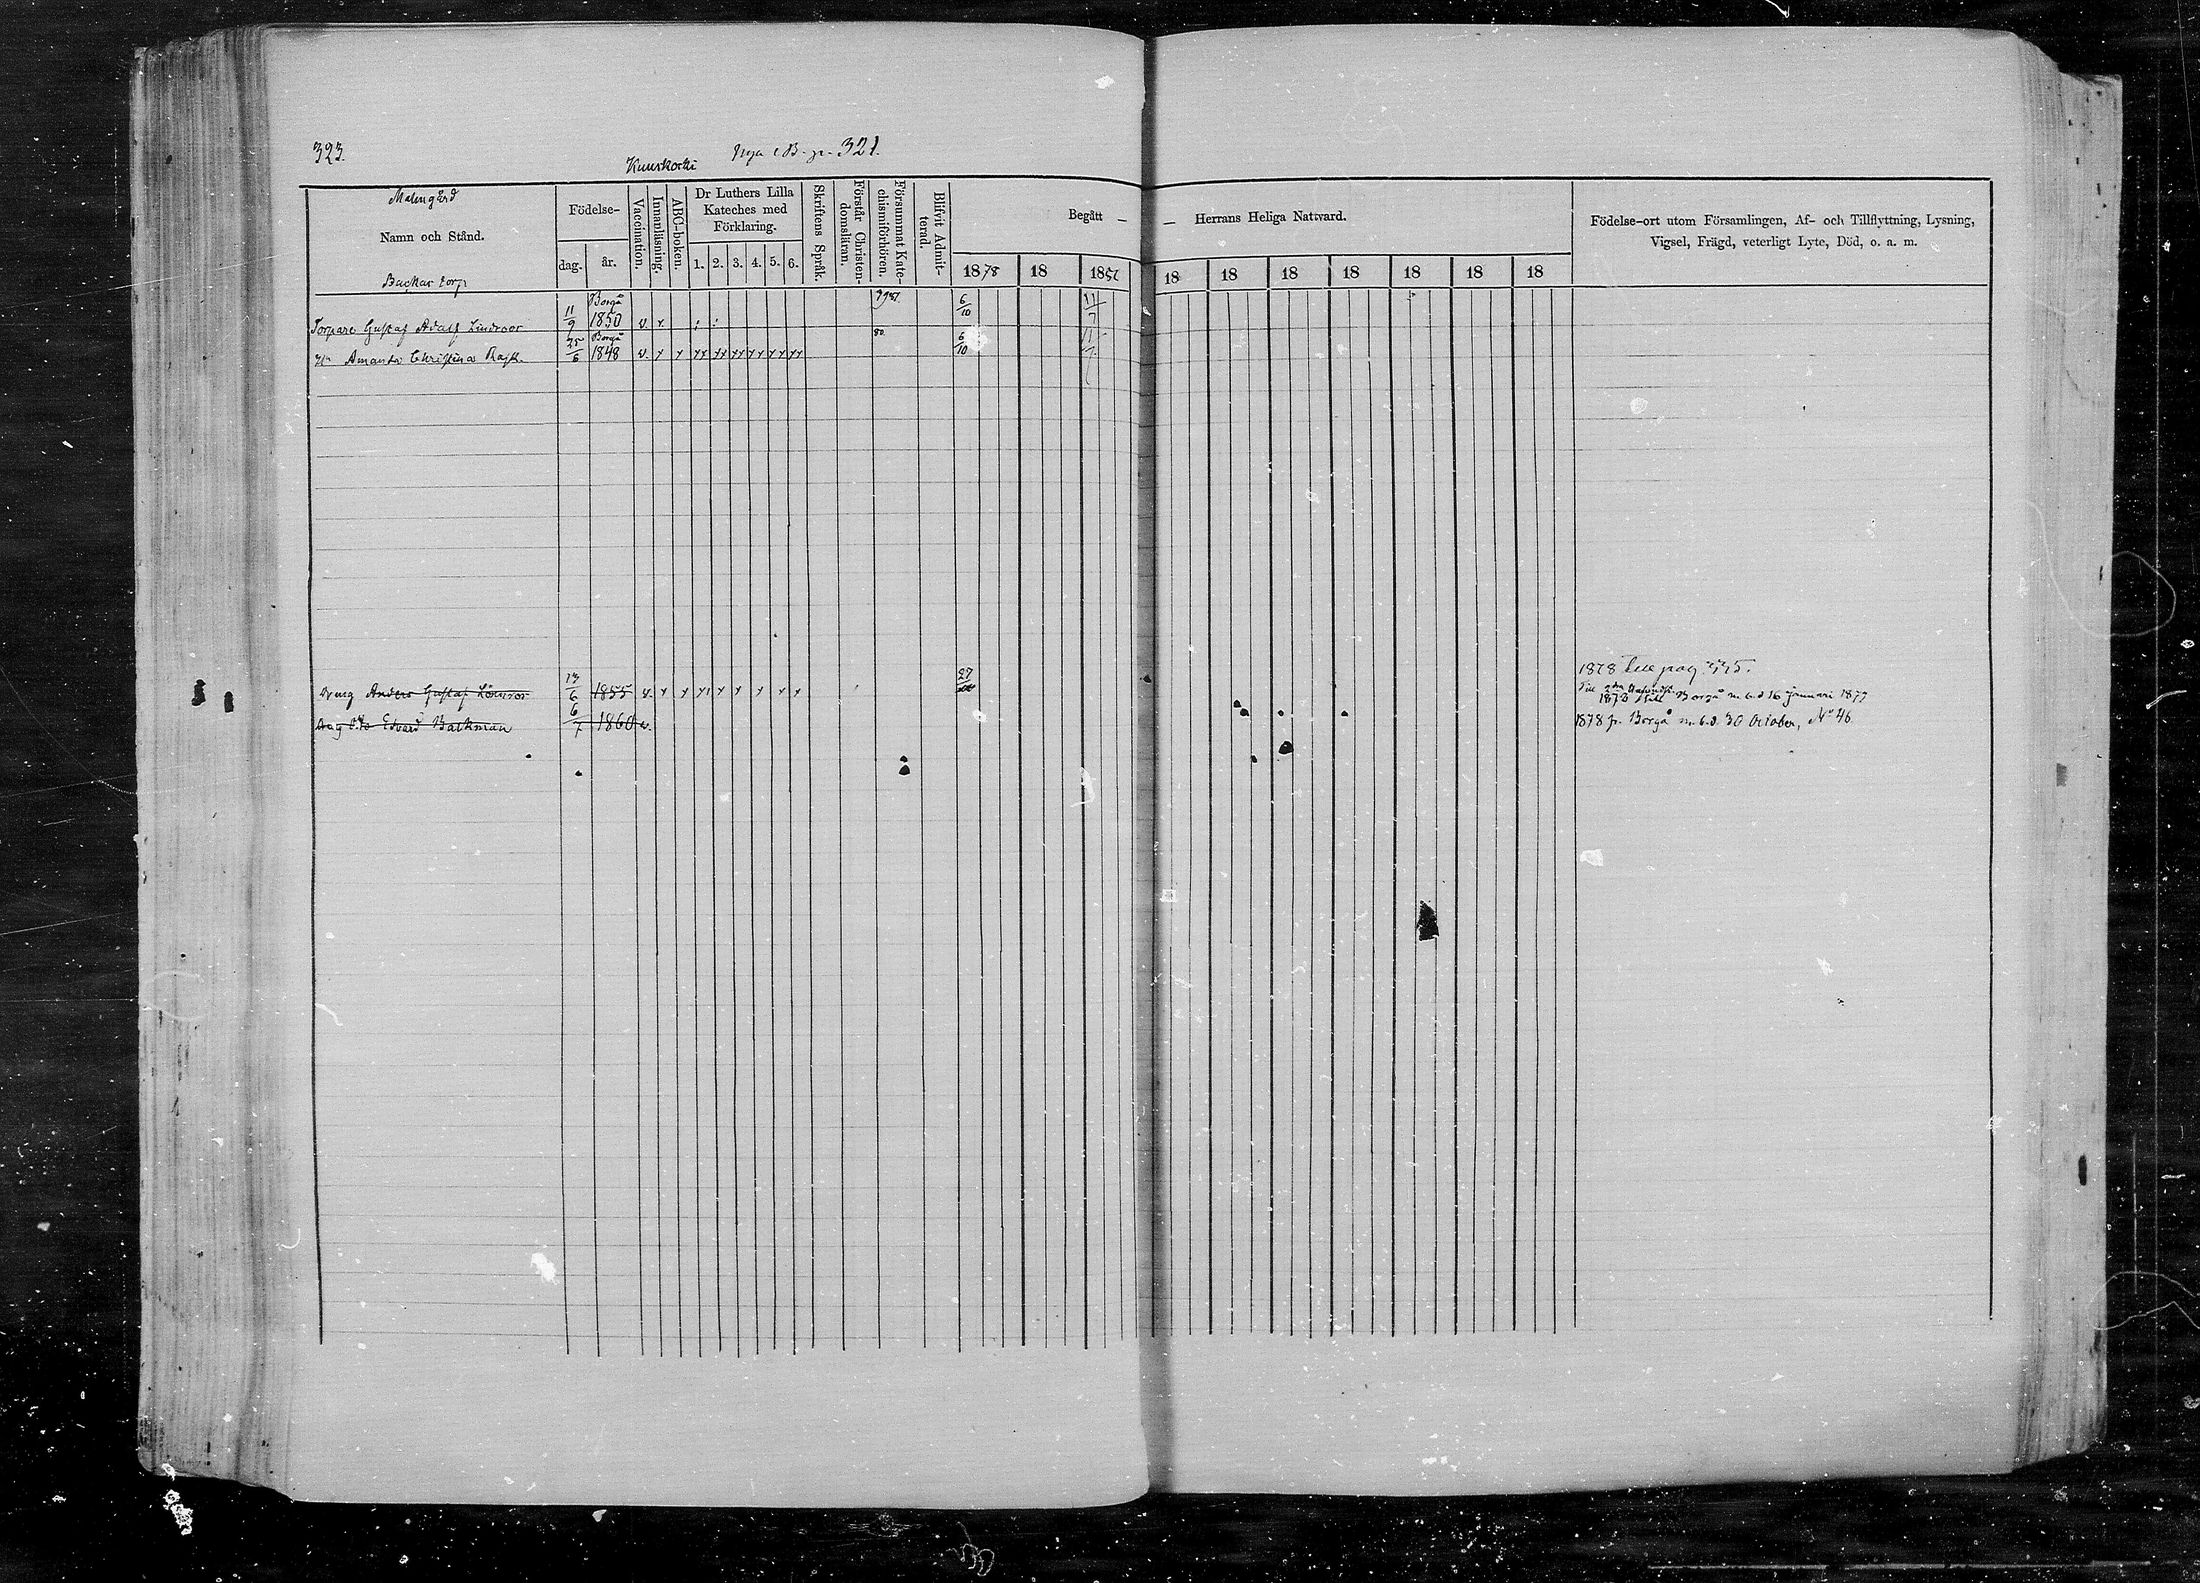 323.
Kuuskoski Nya C.B. p. 321.
Malmgård
Namn och Stånd.
Backas torp
Födelse-
dag. år.
Vaccination.
Innanläsning.
ABC-boken.
Dr Luthers Lilla
Kateches med
Förklaring.
1. 2. 3. 4. 5. 6.
Skriftens Språk.
Förstår Christen-
domsläran.
Försummat Kate-
chismiförhören.
Blifvit Admit-
terad.
Begått — — Herrans Heliga Nattvard.
1878 18 18 18 18 18 18 18 18 18
Födelse-ort utom Församlingen, Af- och Tillflyttning, Lysning,
Vigsel, Frägd, veterligt Lyte, Död, o. a. m.
Borgå
Torpare Gustaf Adolf Lindroos 11/9 1850 v. x 6/10 11/7
Borgå
Amanda Christina 25/6 1848 v. x x xx xx xx xx xx xx 80. 6/10 11/7
1878
Dräng Anders Gustaf 13/6 1855 v. x x x x x x x x 27
1878 till Borgå m. b. d. 16 Januari 1877
Dräng Otto Edvard Backman 6/7 1860 v.
1878 fr. Borgå m. b. d. 30 October, No 46